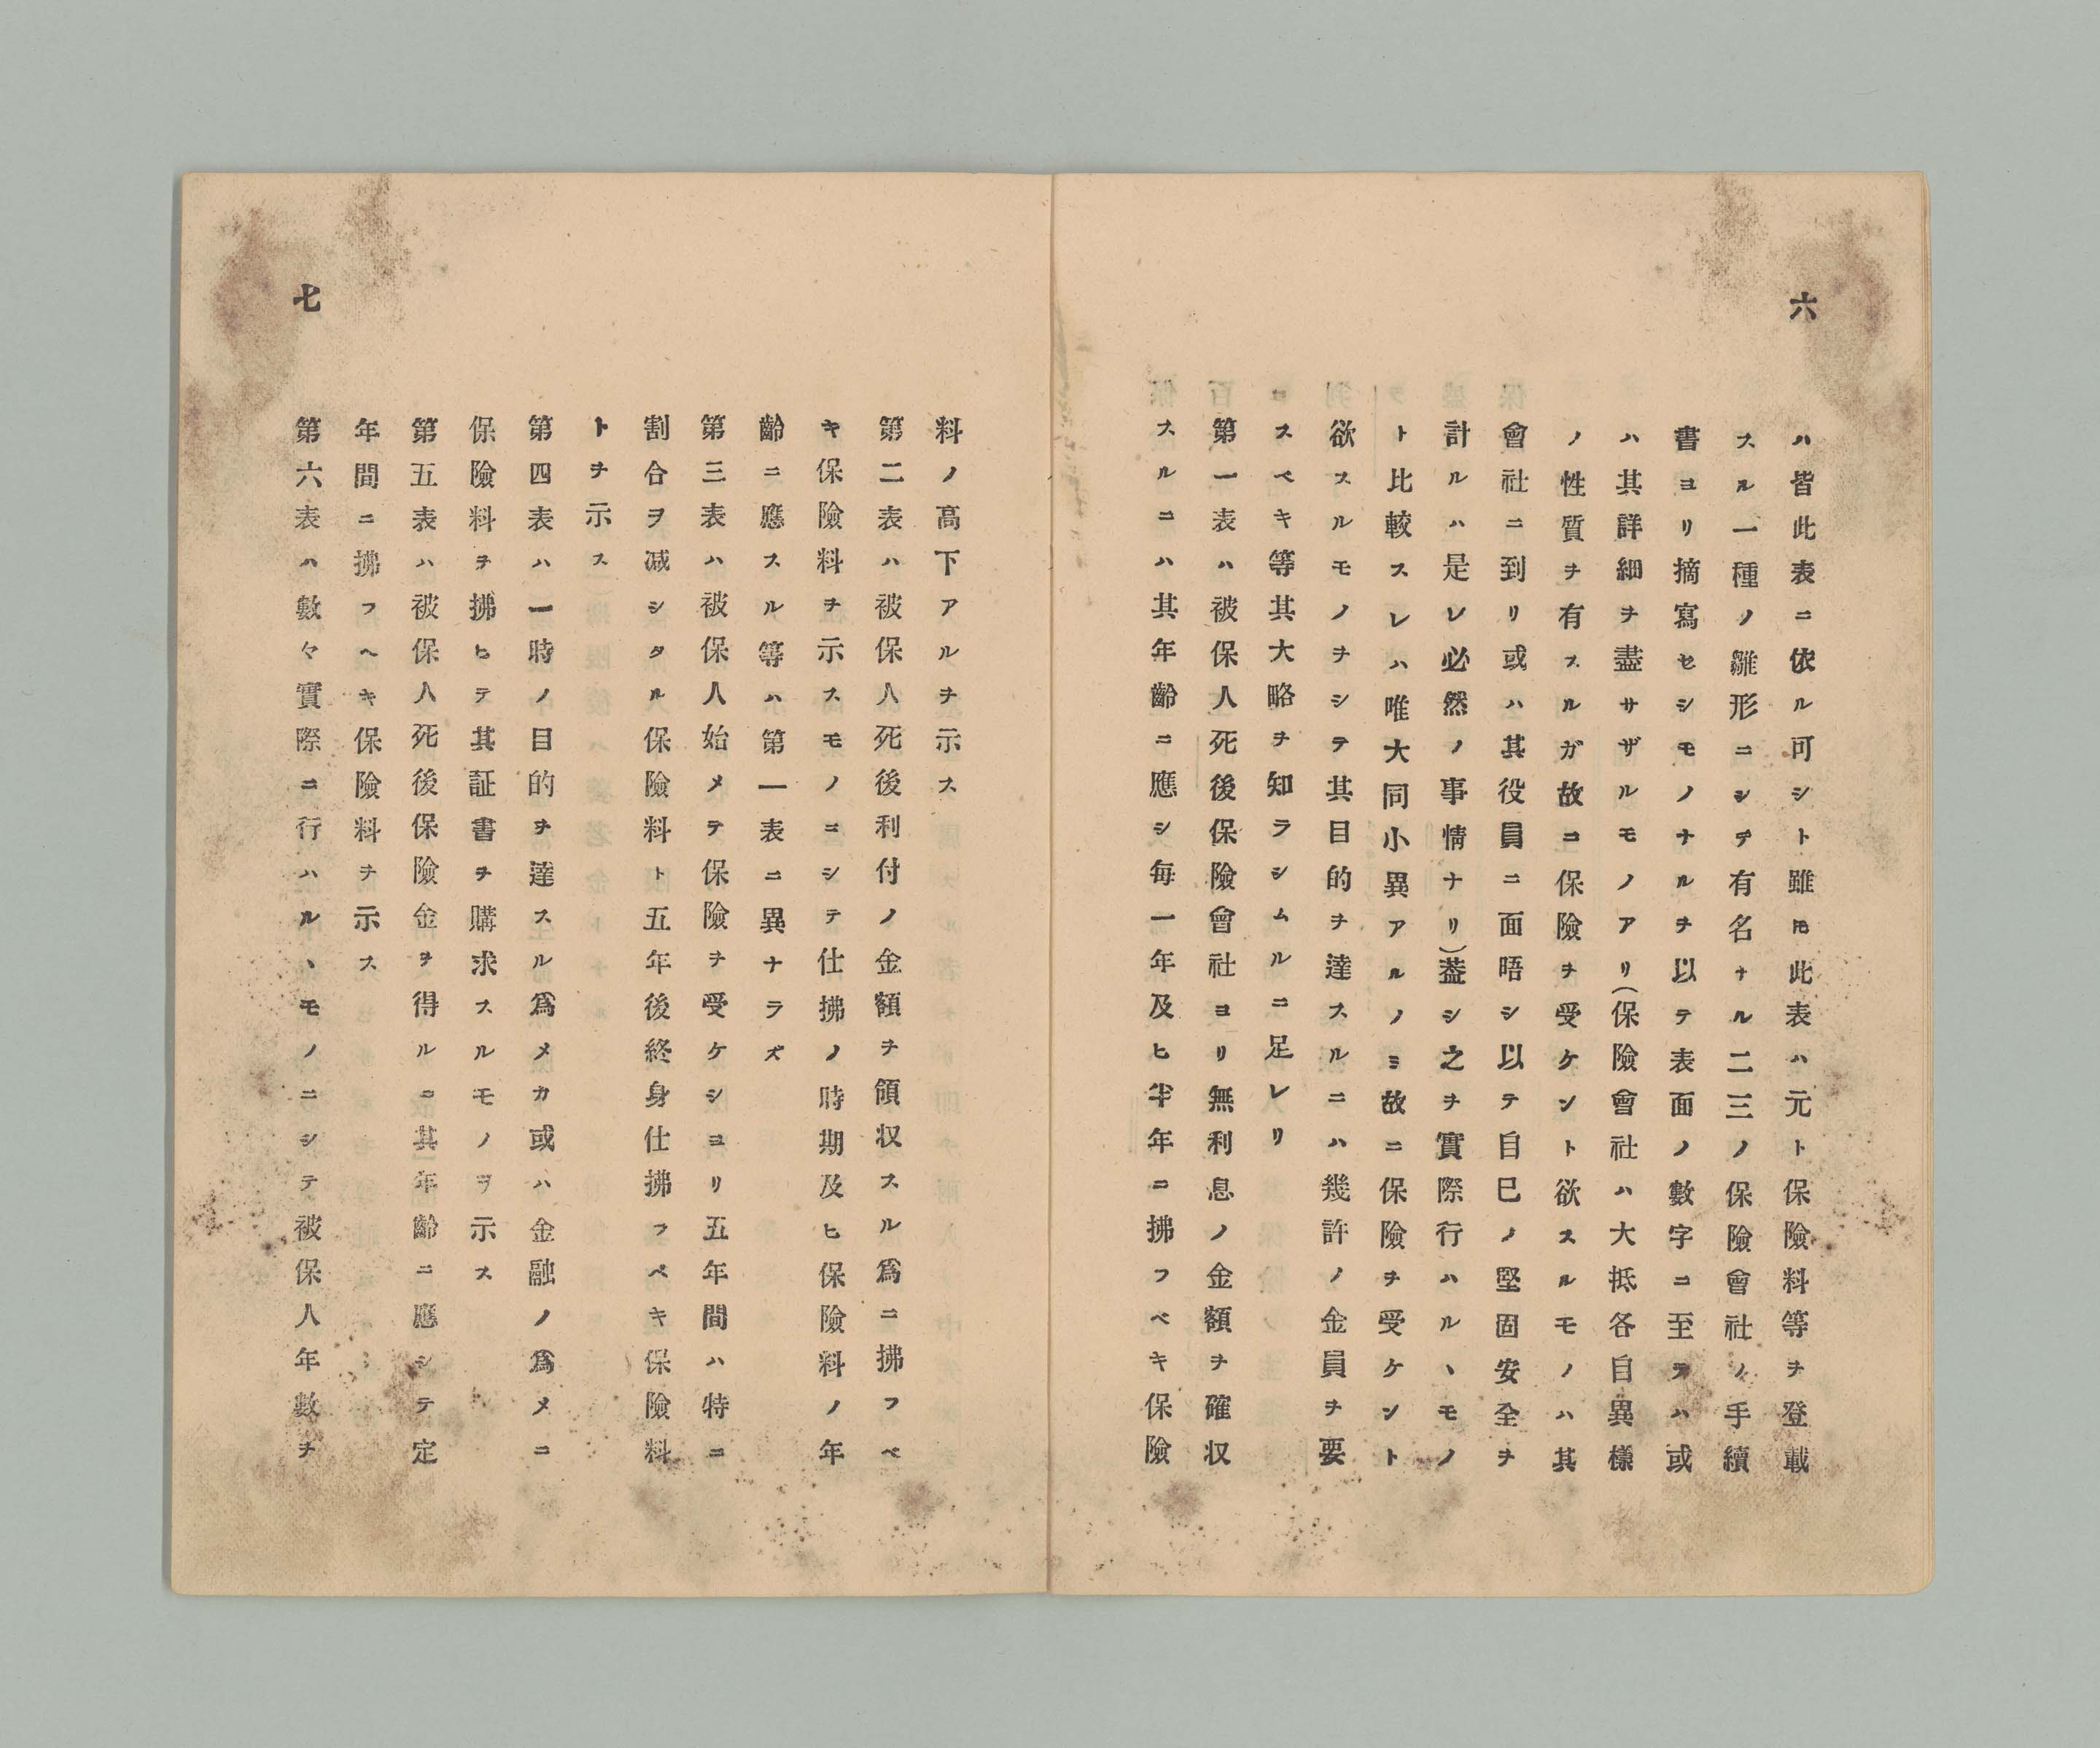 六
ハ皆此表ニ依ル可シト雖𪜈此表ハ元ト保險料等ヲ登載
スル一種ノ雛形ニシテ有名ナル二三ノ保險會社ノ手續
書ヨリ摘寫セシモノナルヲ以テ表面ノ數字ニ至テハ或
ハ其詳細ヲ盡サザルモノアリ(保險會社ハ大抵各自異樣
ノ性質ヲ有スルガ故ニ保險ヲ受ケント欲スルモノハ其
會社ニ到リ或ハ其役員ニ面晤シ以テ自巳ノ堅固安全ヲ
計ルハ是レ必然ノ事情ナリ)蓋シ之ヲ實際行ハルヽモノ
ト比較スレハ唯大同小異アルノミ故ニ保險ヲ受ケント
欲スルモノヲシテ其目的ヲ達スルニハ幾許ノ金員ヲ要
スベキ等其大略ヲ知ラシムルニ足レリ
第一表ハ被保人死後保險會社ヨリ無利息ノ金額ヲ確収
スルニハ其年齡ニ應シ毎一年及ヒ半年ニ拂フベキ保險
料ノ高下アルヲ示ス
第二表ハ被保人死後利付ノ金額ヲ領収スル爲ニ拂フベ
キ保險料ヲ示スモノニシテ仕拂ノ時期及ヒ保險料ノ年
齡ニ應スル等ハ第一表ニ異ナラズ
第三表ハ被保人始メテ保險ヲ受ケシヨリ五年間ハ特ニ
割合ヲ减シタル保險料ト五年後終身仕拂フベキ保險料
トヲ示ス
第四表ハ一時ノ目的ヲ達スル爲メカ或ハ金融ノ爲メニ
保險料ヲ拂ヒテ其証書ヲ購求スルモノヲ示ス
第五表ハ被保人死後保險金ヲ得ルニ其年齡ニ應シテ定
年間ニ拂フヘキ保險料ヲ示ス
第六表ハ數々實際ニ行ハルヽモノニシテ被保人年數ヲ
七